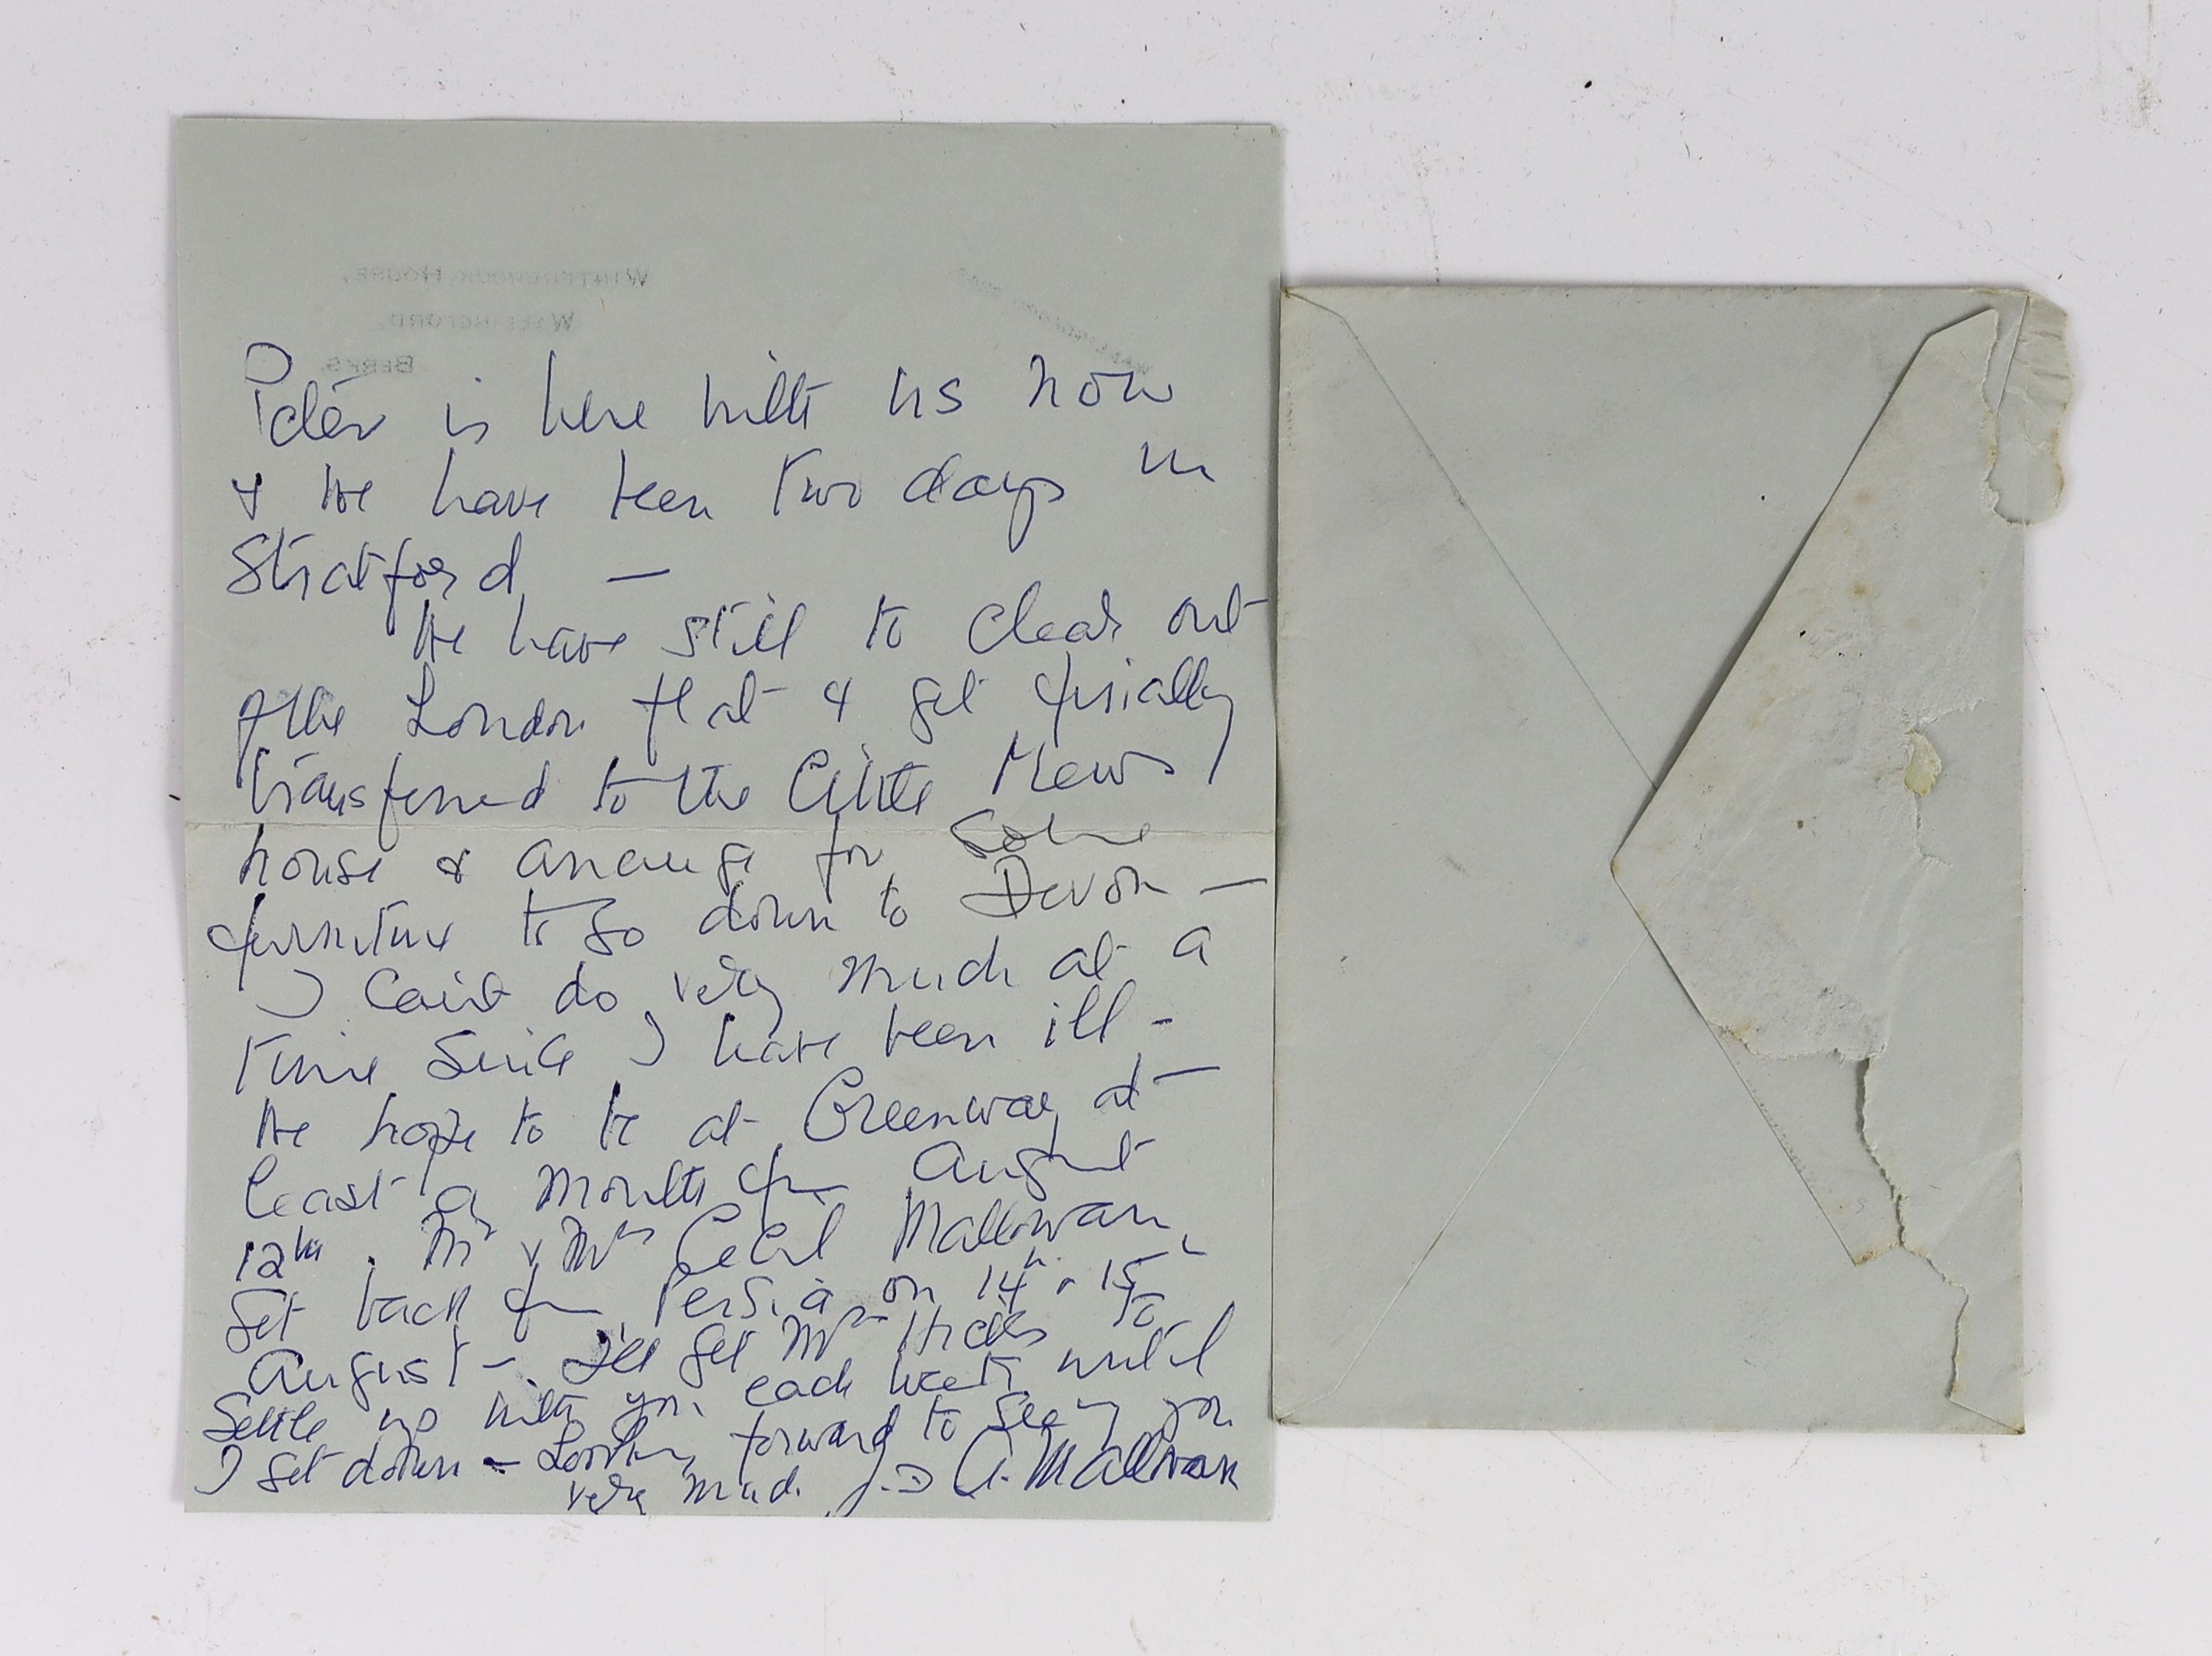 WINTERBROOK HOUSE,
WALLINGFORD,
BERKS.
is here with us now
& we have been two days in
Stratford —
We have still to clear out
of the London flat & get finally
transferred to the little Mews
house & arrange for some
furniture to go down to Devon —
I can't do very much at a
time since I have been ill -
We hope to be at Greenway at
least a month from August
12th. Mr & Mrs Cecil Mallowan
get back from Persia on 14th or 15
August - I'll get Mrs Hicks to
settle up with you each week until
I get down - Looking forward to seeing you
very much A. Mallowan